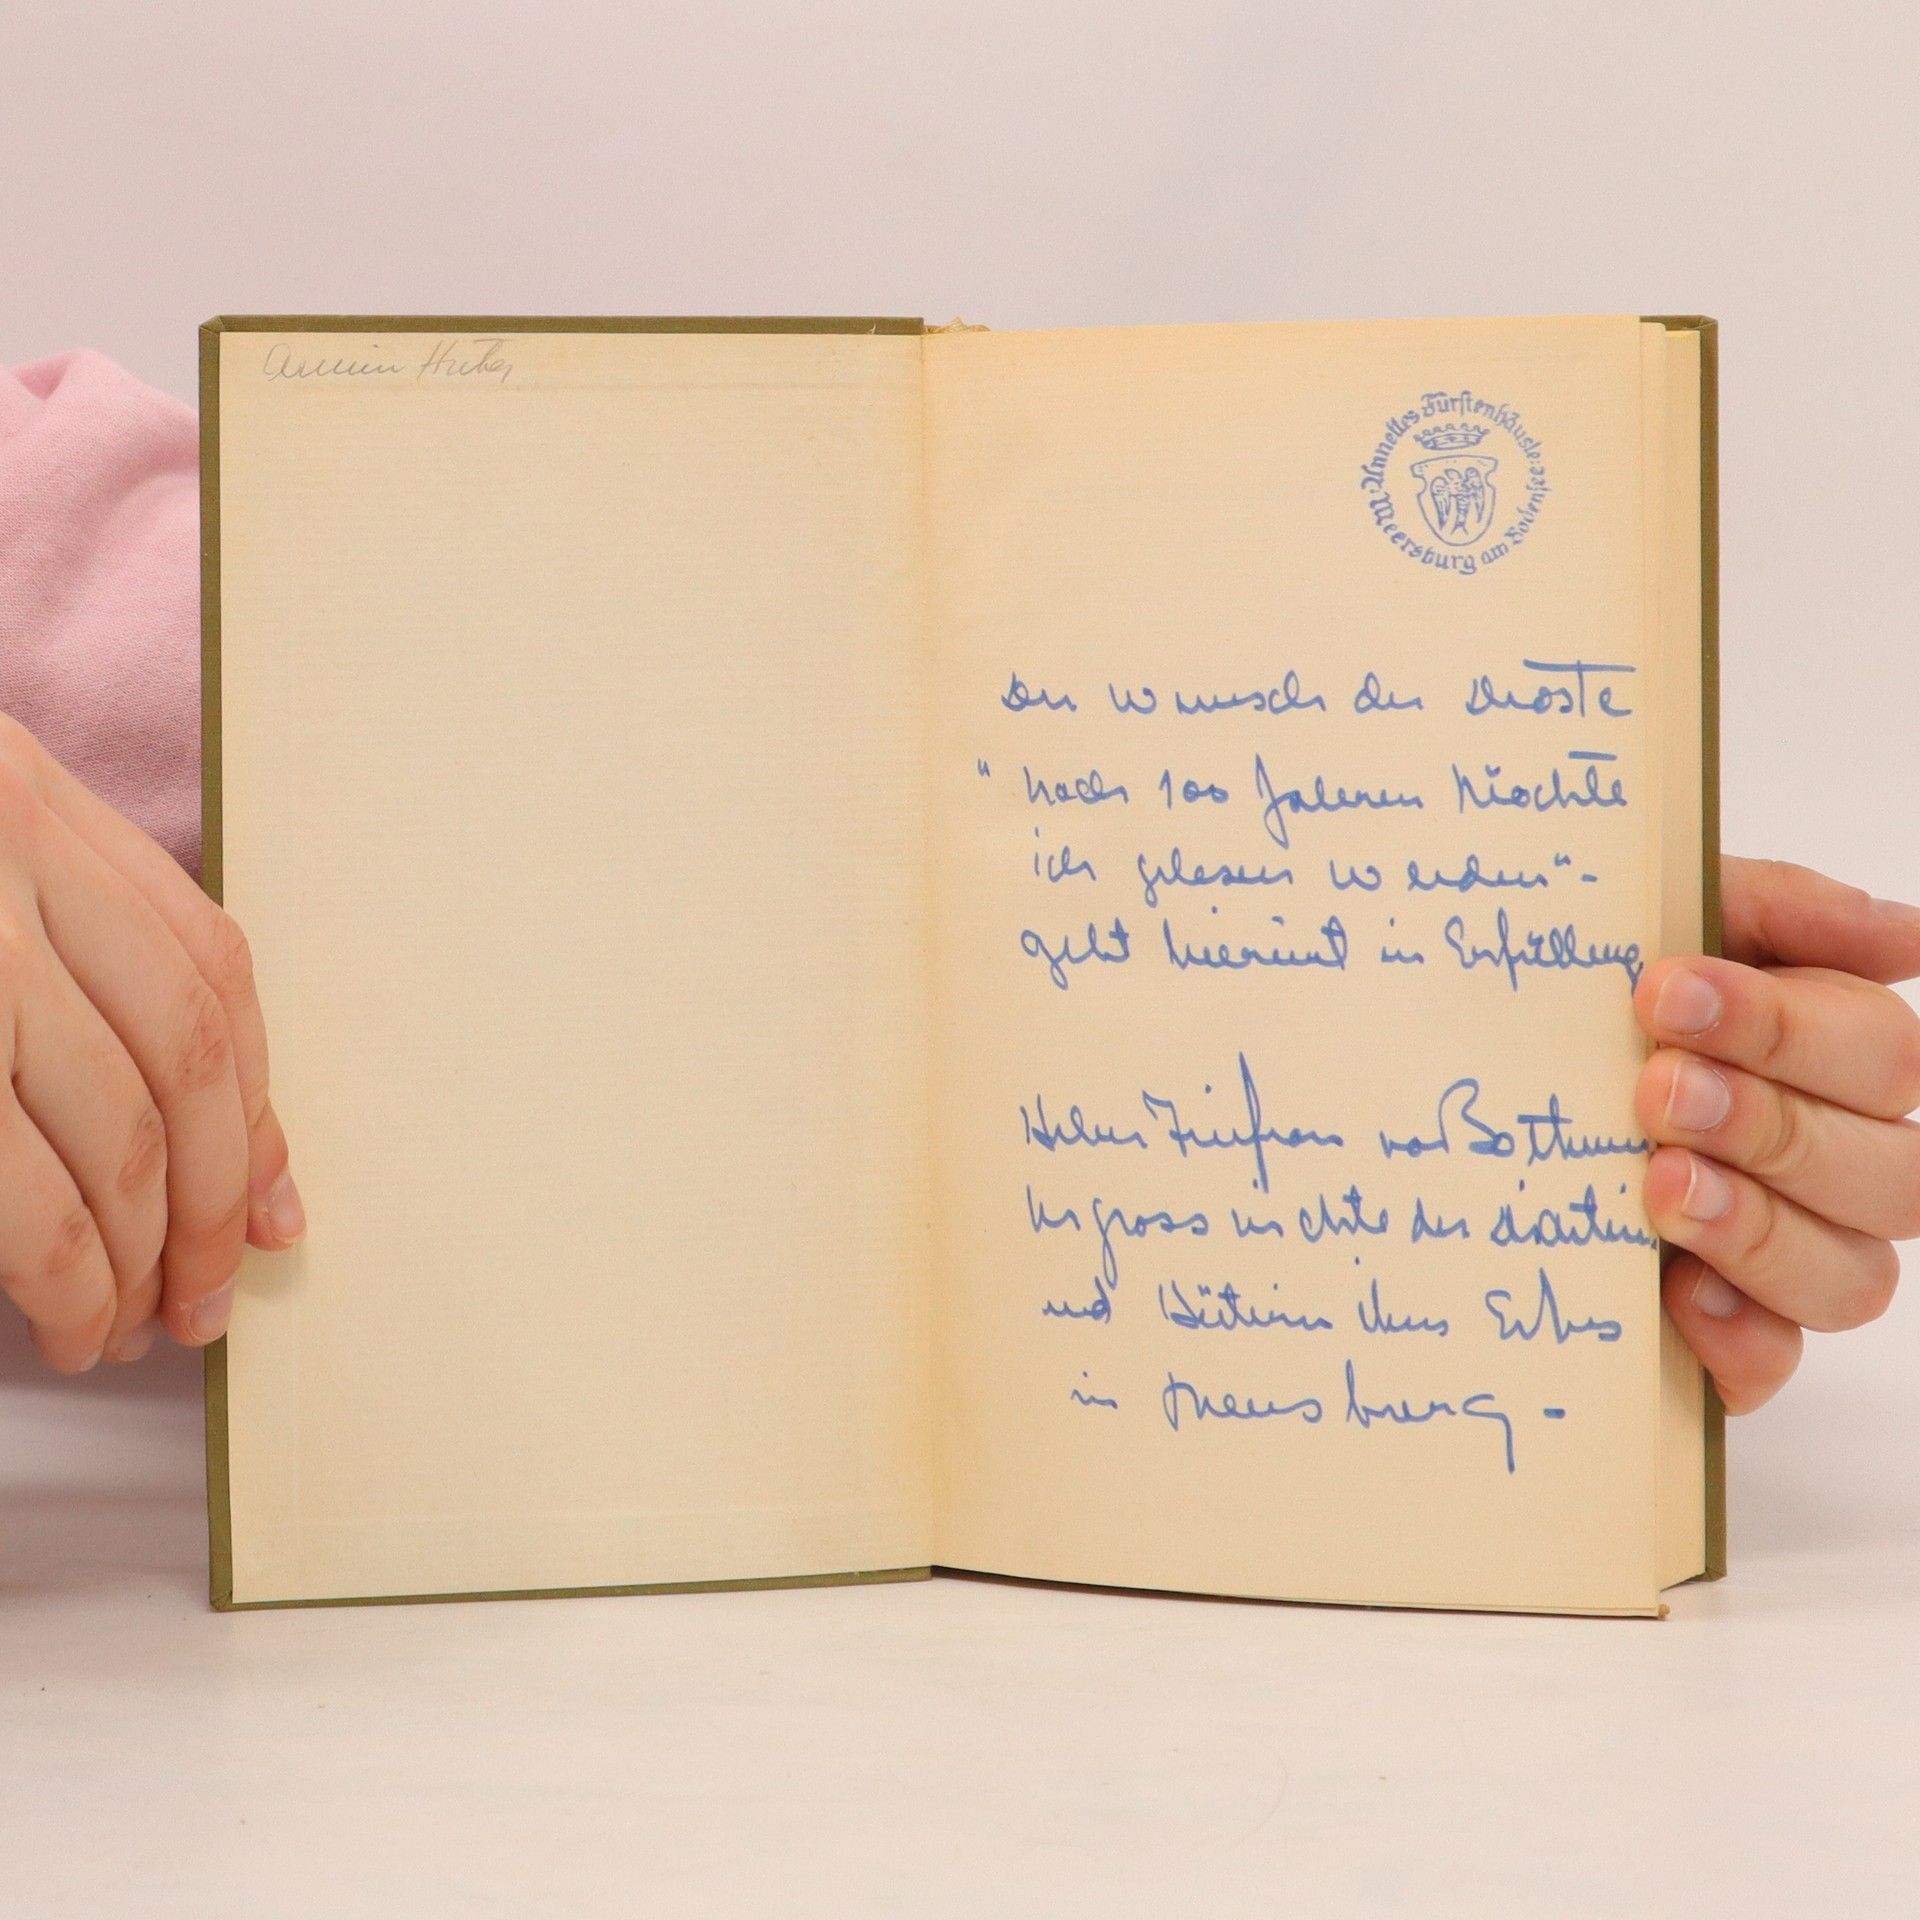 Armin Huber
Annettes Fürstenhäusle: Meersburg am Bodensee
Der Wunsch der Droste
"nach 100 Jahren möchte
ich gelesen werden"-
geht hiermit in Erfüllung
Helen Freifrau von Bothmer
Urgrossnichte der Dichterin
und Hüterin ihres Erbes
in Meersburg -